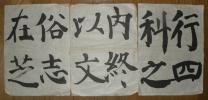 行四
科之
内終
以文
俗志
在芝